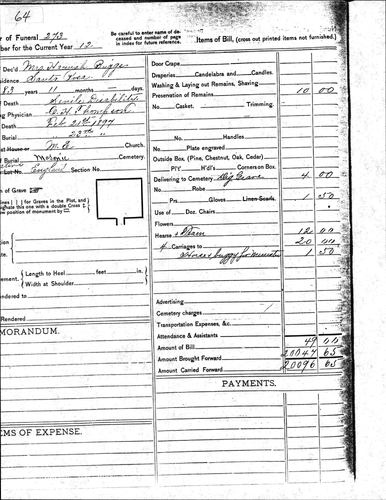 64
r of Funeral 273
ber for the Current Year 12.
Be carefu to enter name of de-
ceased and number of page
in index for future reference.
Items of Bill, (cross out printed items not furnished.)
Dec'd Mrs Hannah Buggs
sidence Santa Rosa
83 years 11 months — days.
Death Senile Disability
g Physician C. H. Thompson
Death Feb 21st 1897
Burial 23rd "
at House or M. E. Church.
of Burial Cemetery.
Lot No. England Section No.
n of Grave
ines [ ] for Graves in the Plot, and
gnate this one with a double Cross
position of monument by
Length to Heel feet in.
ement. Width at Shoulder
ndered to
Rendered
MORANDUM.
MS OF EXPENSE.
Door Crape
Draperies Candelabra and Candles.
Washing & Laying out Remains, Shaving
Preservation of Remains 10 00
No. Casket. Trimming.
No. Handles
Plate engraved
Outside Box (Pine, Chestnut, Oak, Cedar)
P'l'f W'd'l's Corners on Box
Delivering to Cemetery Dig Grave 4 00
No. Robe
Prs. Gloves Linen Scarfs 1 50
Use of Doz. Chairs
Flowers
Hearse & Team 12 00
4 Carriages to 20 00
Horse & buggy for Minister 1 50
Advertising
Cemetery charges
Transportation Expenses, &c.
Attendance & Assistants
Amount of Bill 49 00
Amount Brought Forward 20047 65
Amount Carried Forward 20096 65
PAYMENTS.